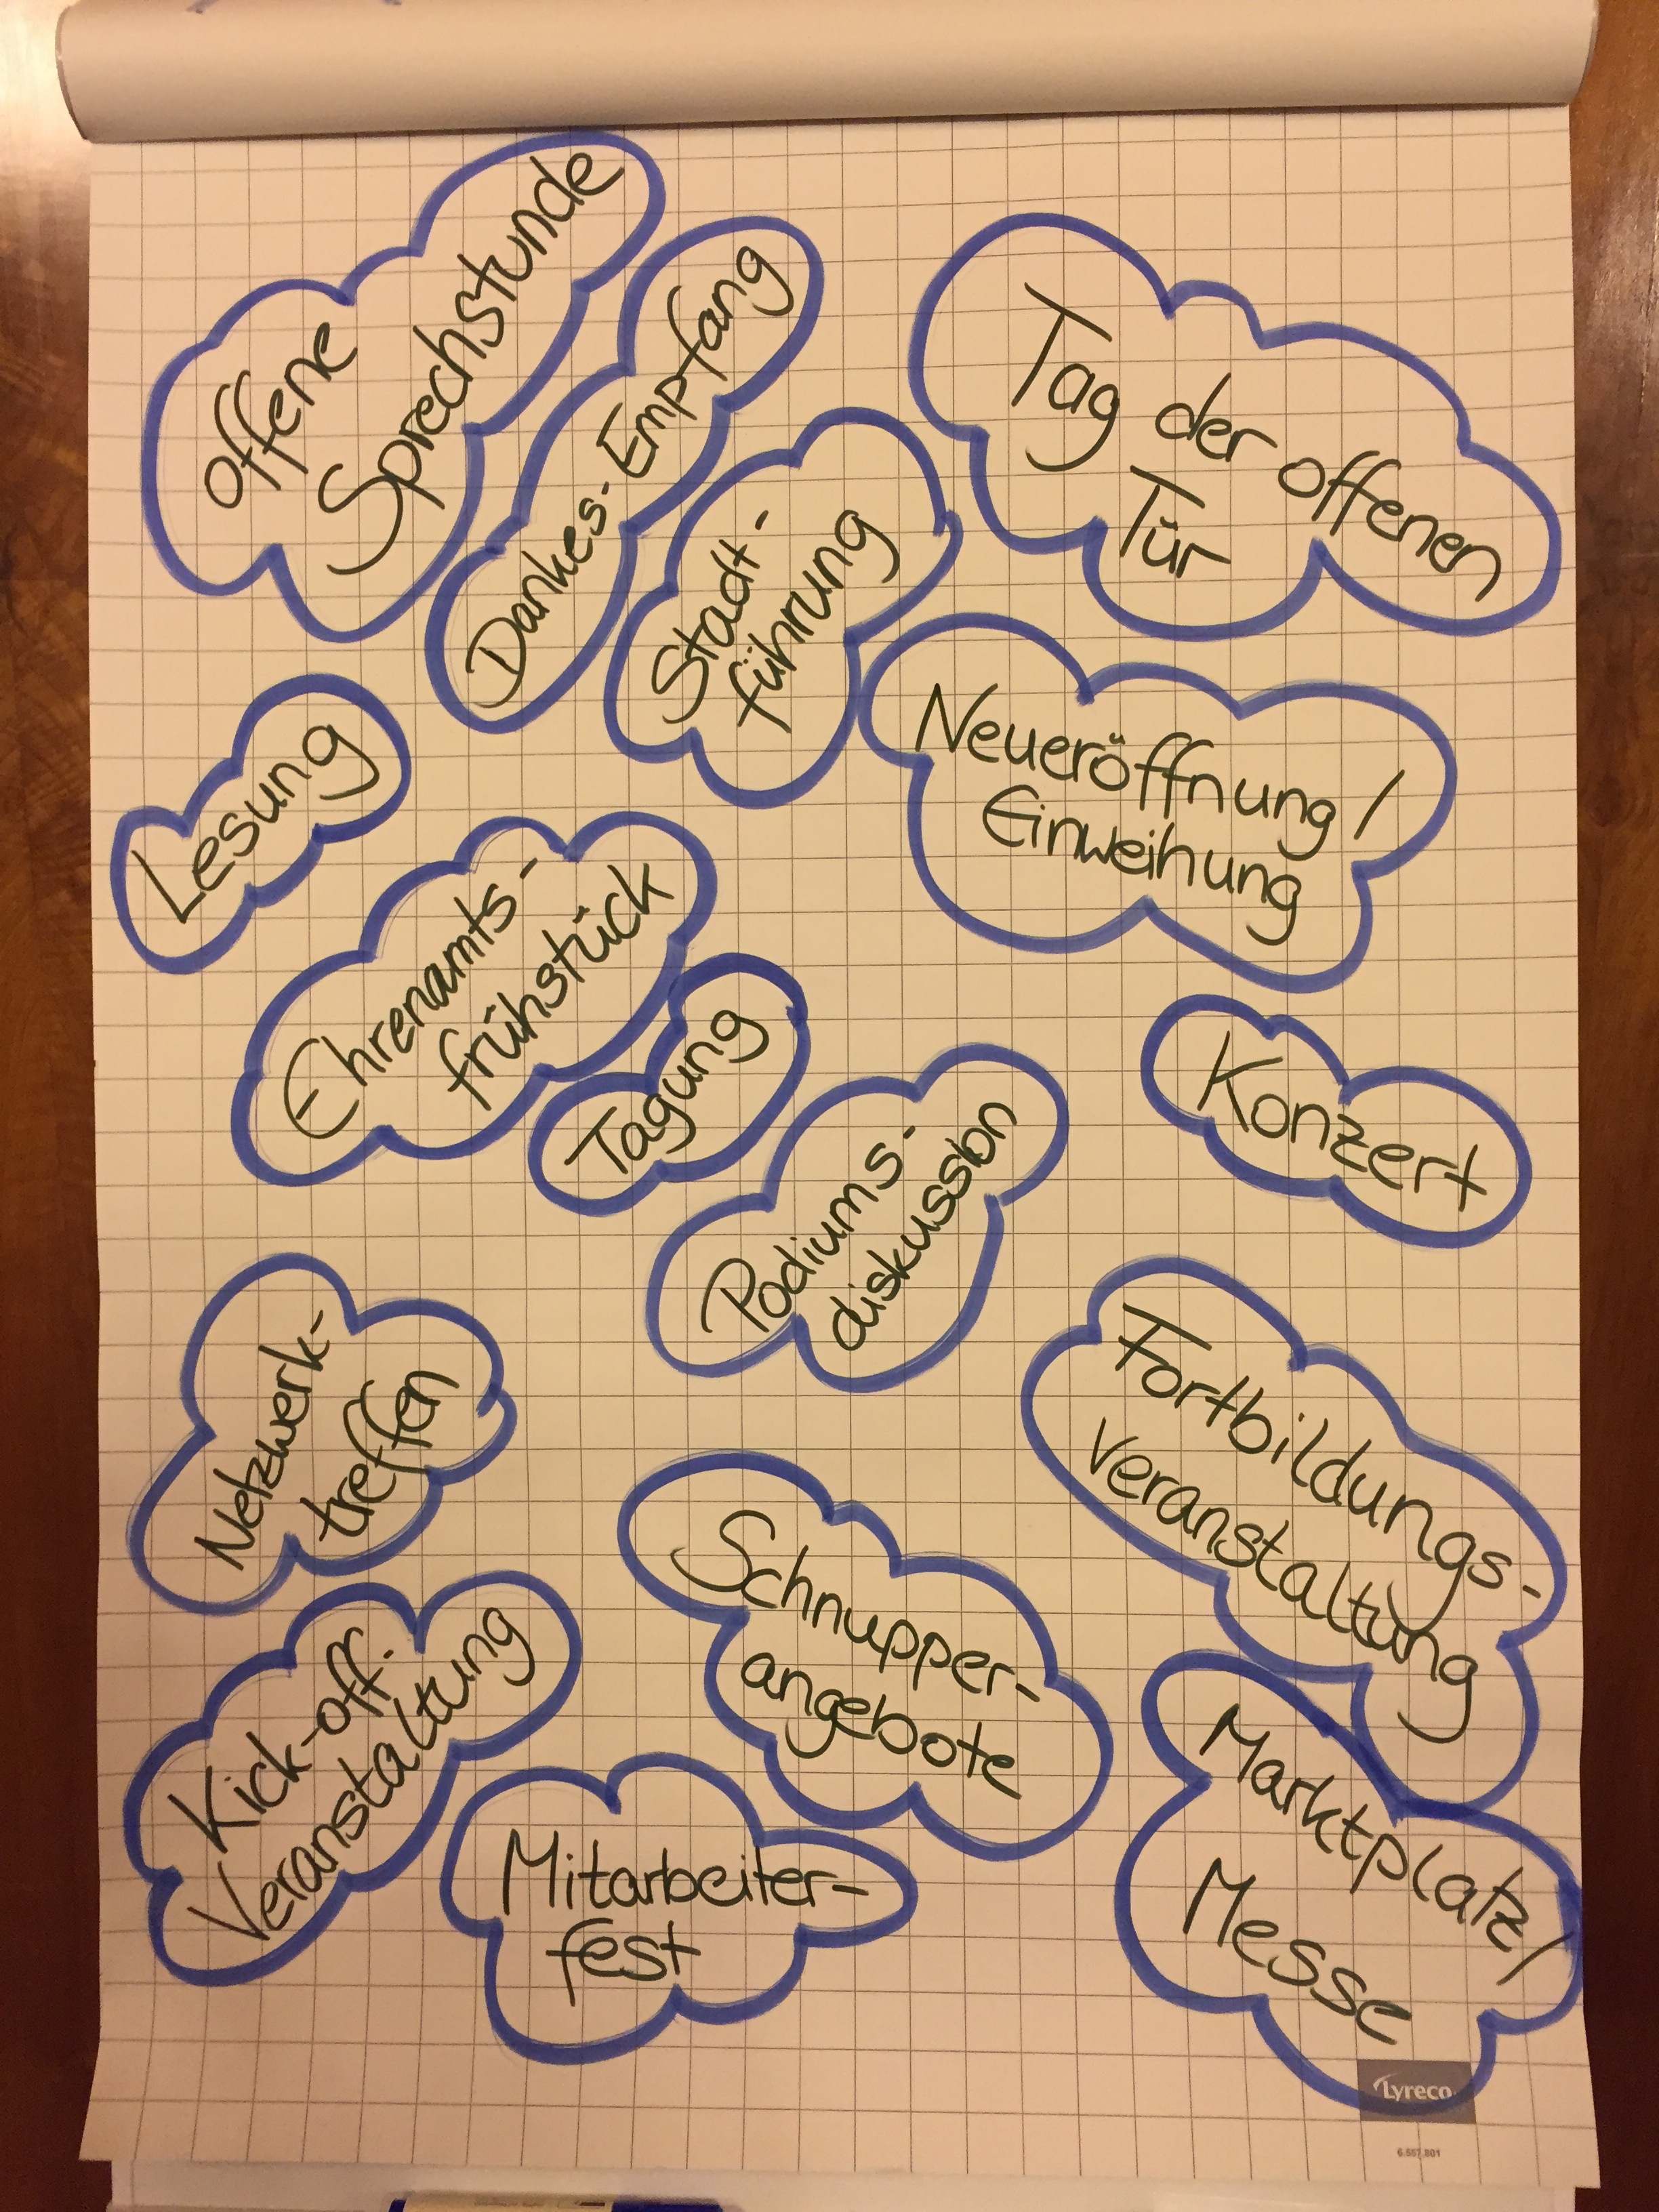 offene
Sprechstunde
Dankes-Empfang
Stadt-
führung
Tag der offenen
Tür
Lesung
Neueröffnung /
Einweihung
Ehrenamts-
frühstück
Tagung
Konzert
Podiums-
diskussion
Netzwerk-
treffen
Fortbildungs-
veranstaltung
Schnupper-
angebote
Kick-off-
Veranstaltung
Mitarbeiter-
fest
Marktplatz/
Messe
Lyreco
6.557.801